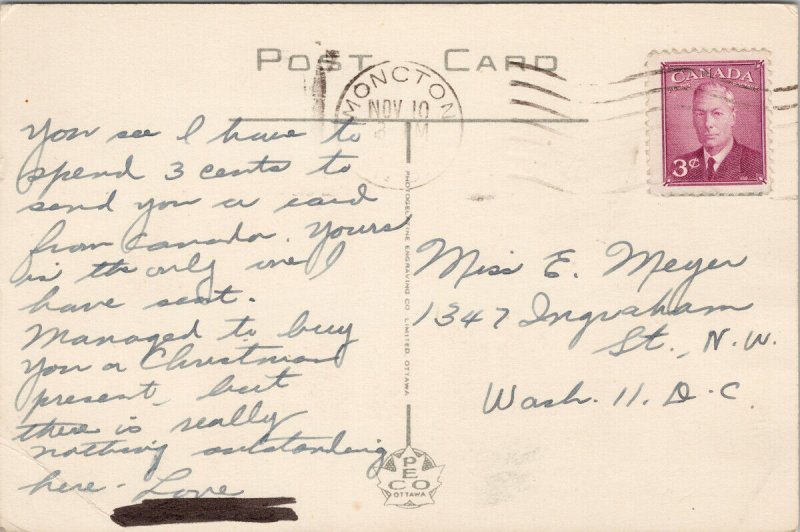 POST CARD
MONCTON
NOV 10
M
CANADA
3¢
You see I have to
spend 3 cents to
send you a card
from Canada. Yours
is the only one I
have sent.
Managed to buy
you a Christmas
present, but
there is really
nothing outstanding
here - Love
PHOTOGELATINE ENGRAVING CO. LIMITED, OTTAWA
PECO
OTTAWA
Miss E. Meyer
1347 Ingraham
St., N.W.
Wash. 11. D.C.